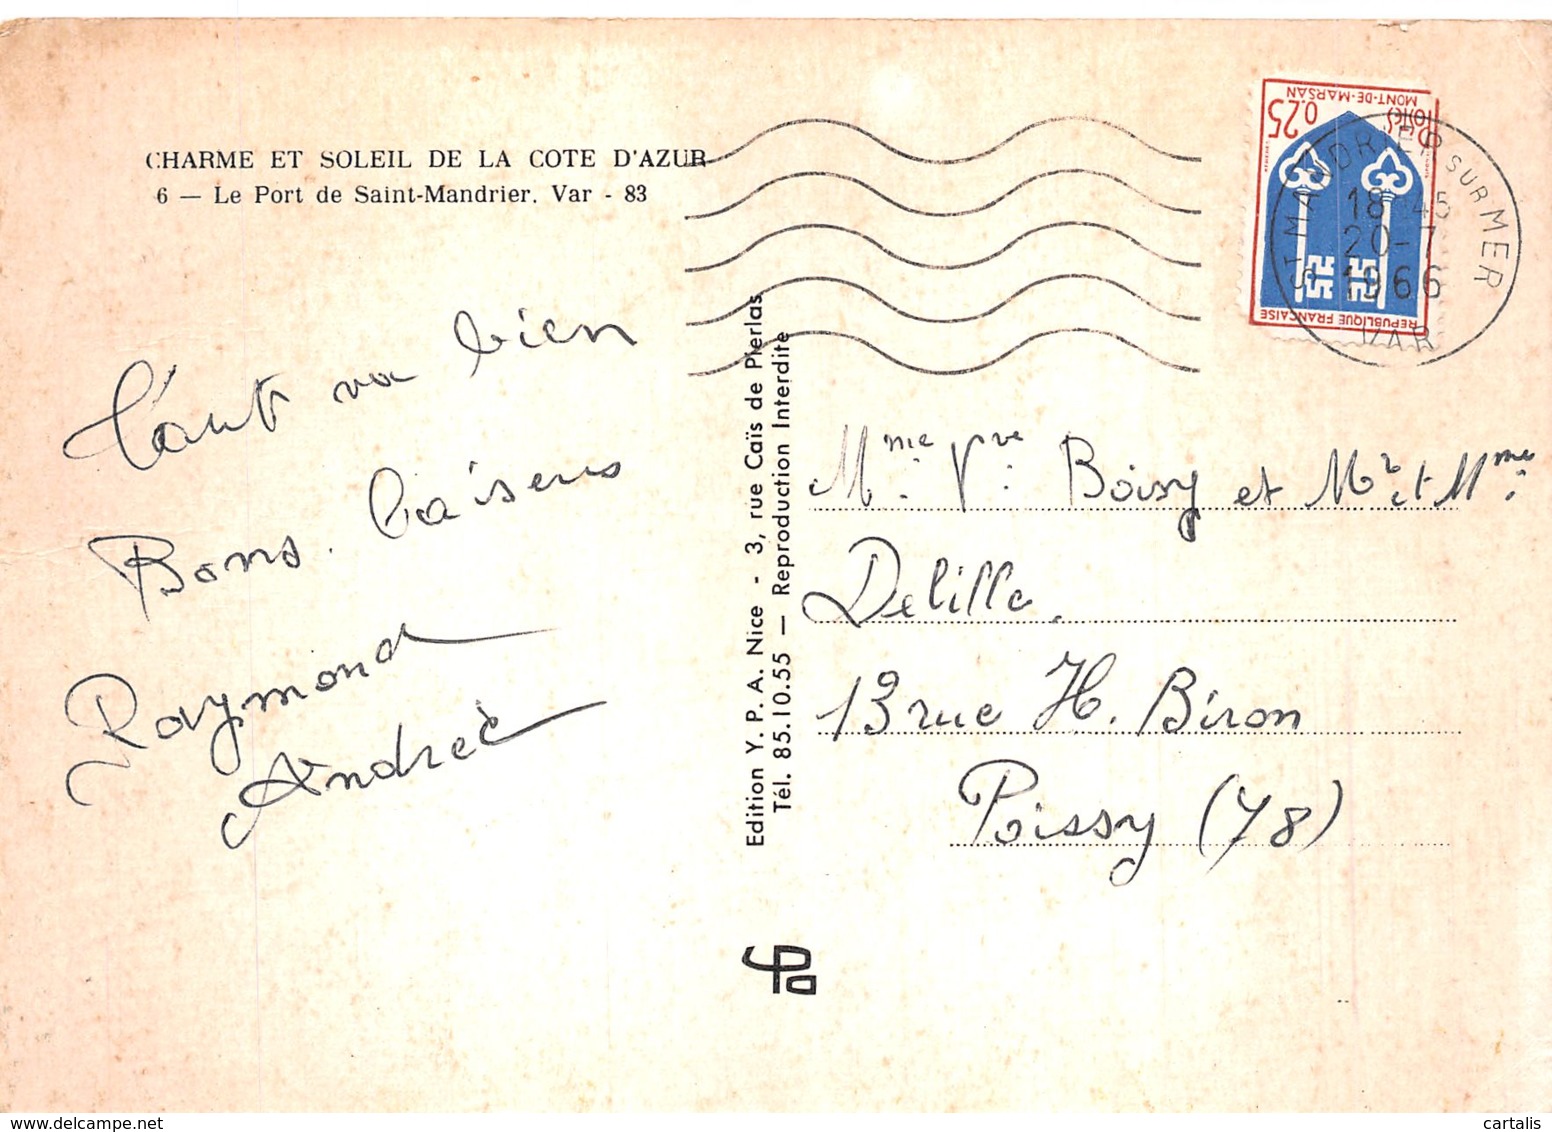 CHARME ET SOLEIL DE LA COTE D'AZUR
6 — Le Port de Saint-Mandrier. Var - 83
Tout va bien
Bons baisers
Raymond
Andrée
Edition Y. P. A. Nice - 3, rue Caïs de Pierlas
Tél. 85.10.55 — Reproduction Interdite
0.25
Postes
MONT-DE-MARSAN
REPUBLIQUE FRANÇAISE
ST MANDRIER SUR MER
18 45
20-7
1966
VAR
Mme Vve Boisy et Mr et Mme
Delille.
13 rue H. Biron
Poissy (78)
cartalis